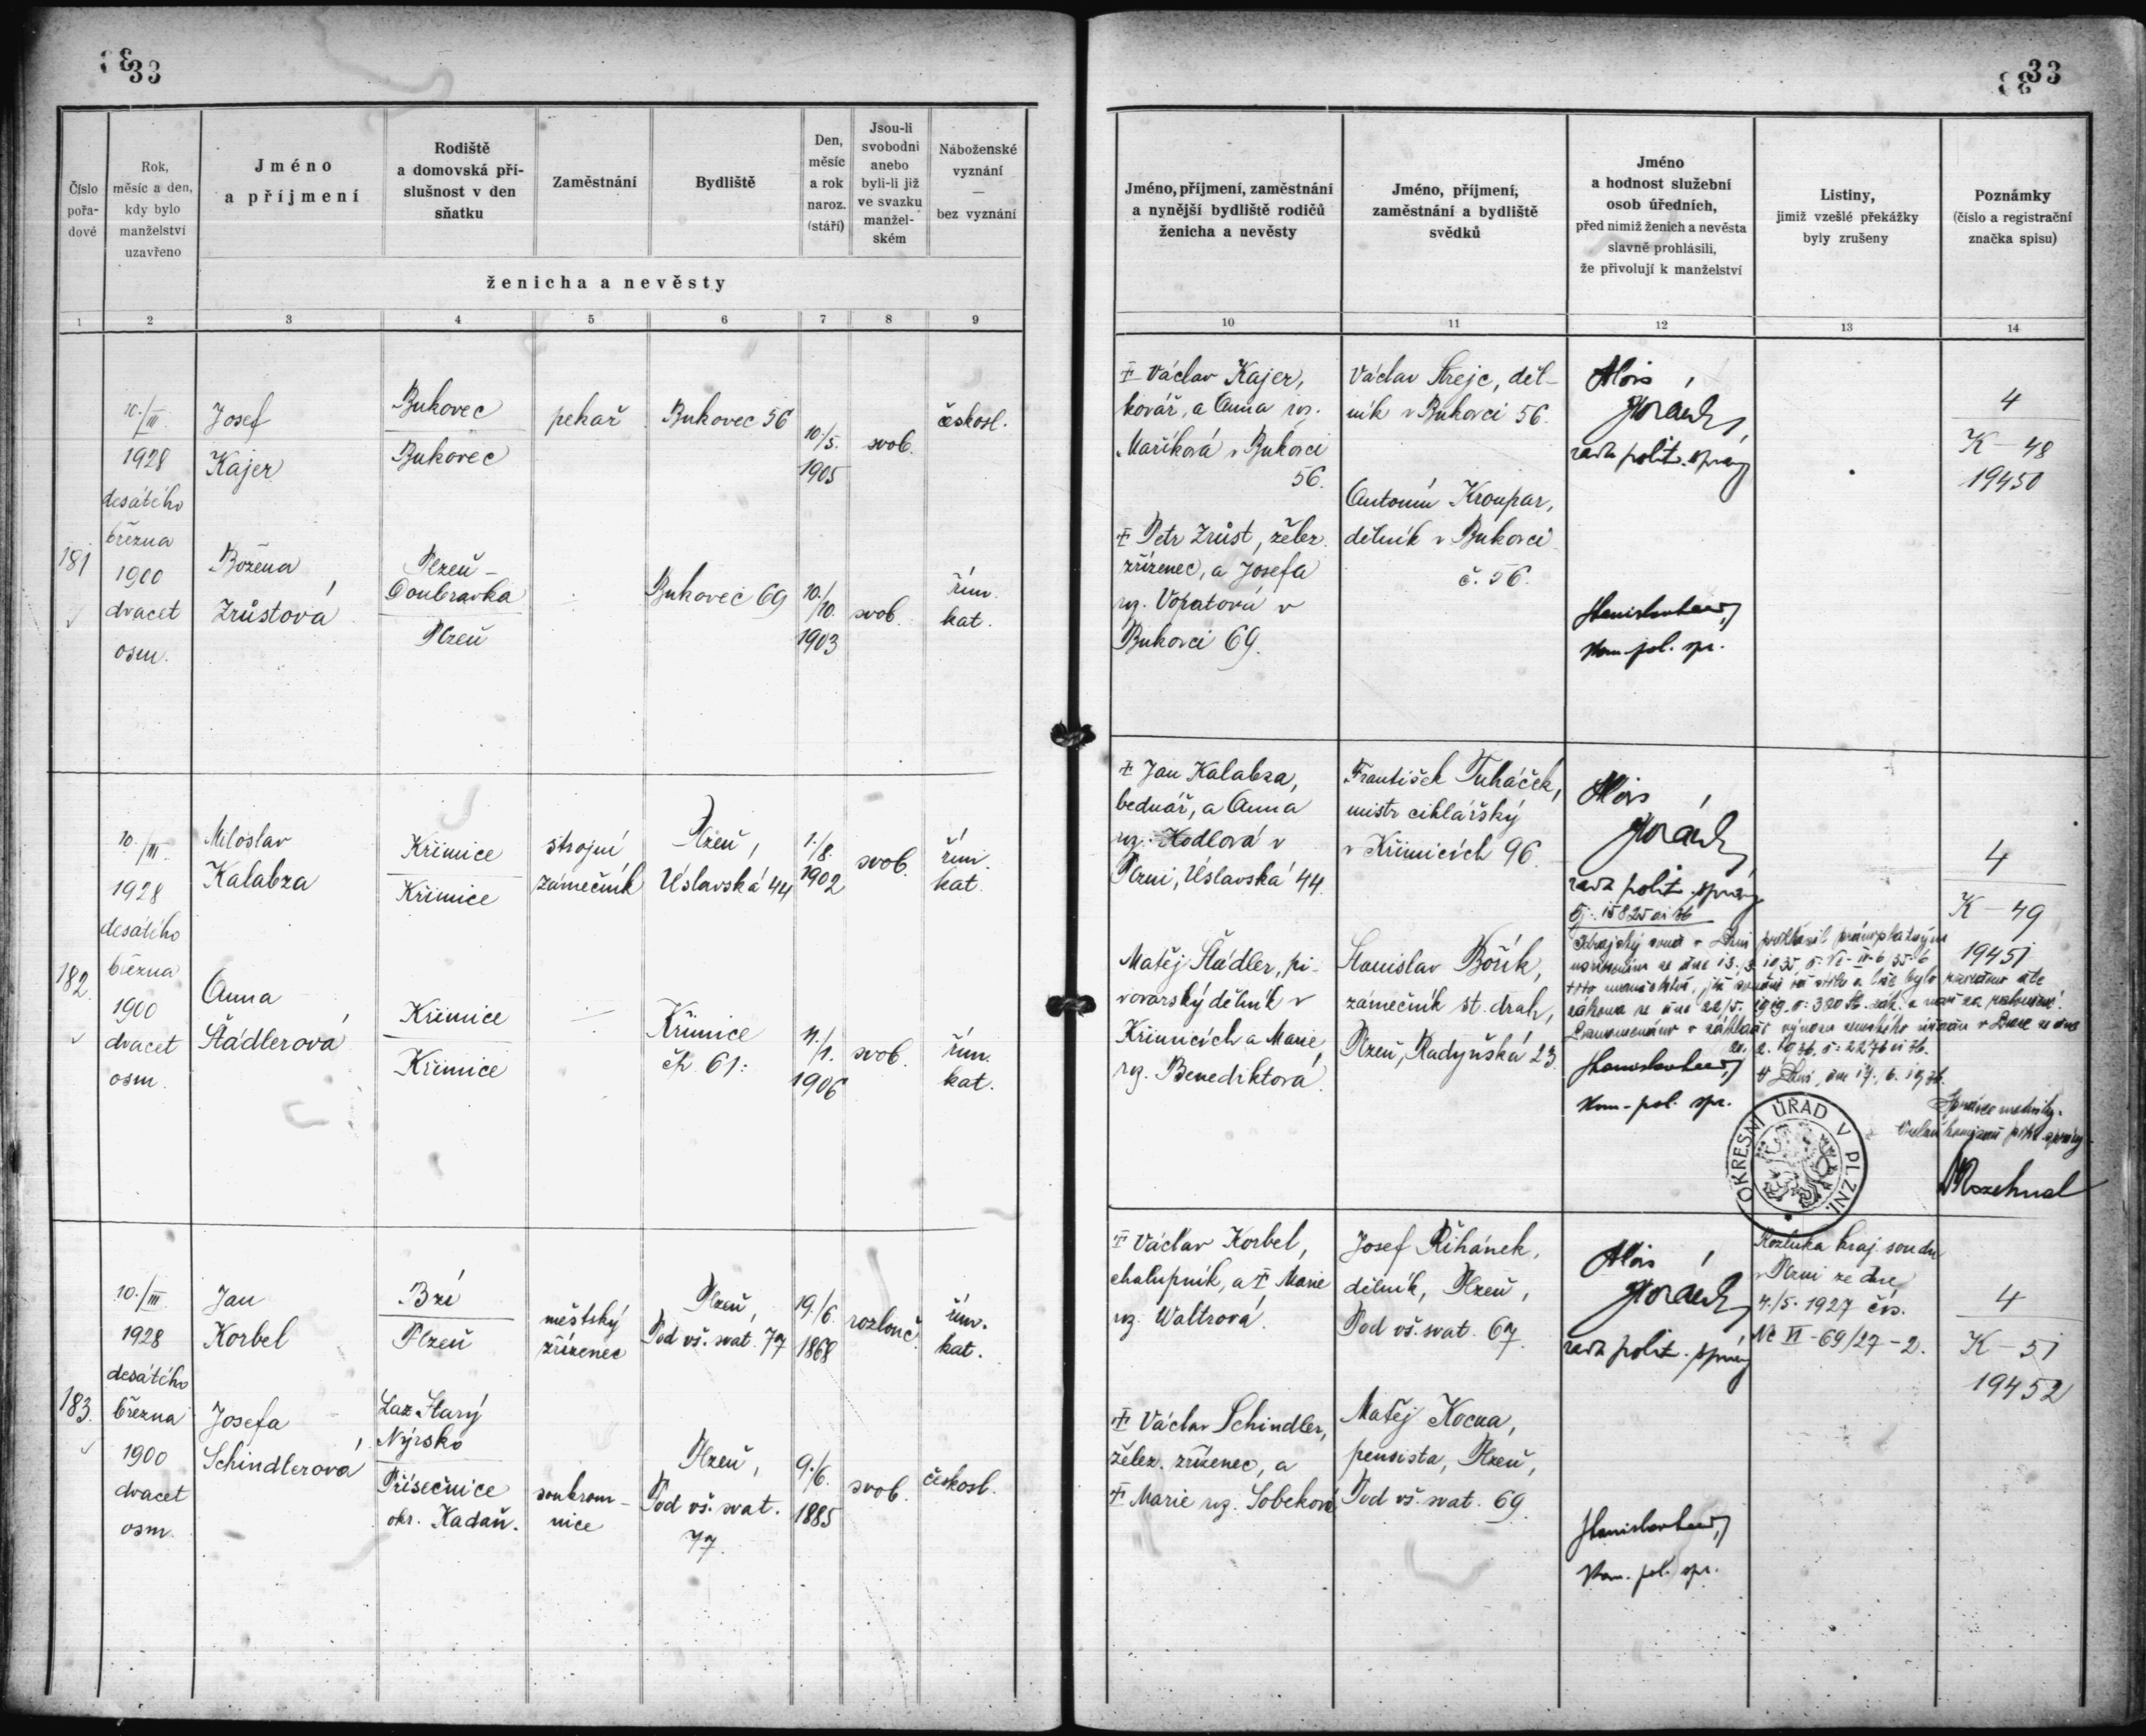 33
33
Číslo pořadové
Rok, měsíc a den, kdy bylo manželství uzavřeno
Jméno a příjmení
Rodiště a domovská příslušnost v den sňatku
Zaměstnání
Bydliště
Den, měsíc a rok naroz. (stáří)
Jsou-li svobodni anebo byli-li již ve svazku manželském
Náboženské vyznání — bez vyznání
ženicha a nevěsty
Jméno, příjmení, zaměstnání a nynější bydliště rodičů ženicha a nevěsty
Jméno, příjmení, zaměstnání a bydliště svědků
Jméno a hodnost služební osob úředních, před nimiž ženich a nevěsta slavně prohlásili, že přivolují k manželství
Listiny, jimiž vzešlé překážky byly zrušeny
Poznámky (číslo a registrační značka spisu)
1 2 3 4 5 6 7 8 9 10 11 12 13 14
181
10./III.
1928
desátého
března
1900
dvacet
osm.
Josef
Kajer
Bukovec
Bukovec
pekař
Bukovec 56
10./5.
1905
svob.
českosl.
Božena
Zrůstová
Plzeň –
Doubravka
Plzeň
Bukovec 69
10./10.
1903
svob.
řím.
kat.
† Václav Kajer,
kovář, a Anna roz.
Maříková v Bukovci
56.
† Petr Zrůst, želez.
zřízenec, a Josefa
roz. Voratová v
Bukovci 69.
Václav Strejc, děl-
ník v Bukovci 56.
Antonín Kroupar,
dělník v Bukovci
č. 56.
Alois
Horáček,
rada polit. správy
kom. pol. spr.
4
K – 48
19450
182.
10./III.
1928
desátého
března
1900
dvacet
osm.
Miloslav
Kalabza
Křimice
Křimice
strojní
zámečník
Plzeň,
Úslavská 44
1./8.
1902
svob.
řím.
kat.
Anna
Štádlerová
Křimice
Křimice
Křimice
čp. 61.
4./1.
1906
svob.
řím.
kat.
† Jan Kalabza,
bednář, a Anna
roz. Kodlová v
Plzni, Úslavská 44.
Matěj Štádler, pi-
vovarský dělník v
Křimicích a Marie
roz. Benediktová.
František Tuháček,
mistr cihlářský
v Křimicích 96.
Stanislav Bořík,
zámečník st. drah,
Plzeň, Radyňská 23.
Alois
Horáček
rada polit. správy
kom. pol. spr.
4
K – 49
19451
OKRESNÍ ÚŘAD V PLZNI.
183.
10./III.
1928
desátého
března
1900
dvacet
osm.
Jan
Korbel
Bzí
Plzeň
městský
zřízenec
Plzeň,
Pod vš. svat. 77
19./6.
1868
rozlouč.
řím.
kat.
Josefa
Schindlerová
Laz Starý
Nýrsko
Přísečnice
okr. Kadaň.
soukrom-
nice
Plzeň,
Pod vš. svat.
77.
9./6.
1885
svob.
českosl.
† Václav Korbel,
chalupník, a † Marie
roz. Waltrová.
† Václav Schindler,
želez. zřízenec, a
† Marie roz. Sobeková
Josef Řihánek,
dělník, Plzeň,
Pod vš. svat. 67.
Matěj Kocna,
pensista, Plzeň,
Pod vš. svat. 69.
Alois
Horáček
rada polit. správy
kom. pol. spr.
Rozluka kraj. soudu
v Plzni ze dne
4./5. 1927 čís.
Nc VI – 69/27 – 2.
4
K – 51
19452